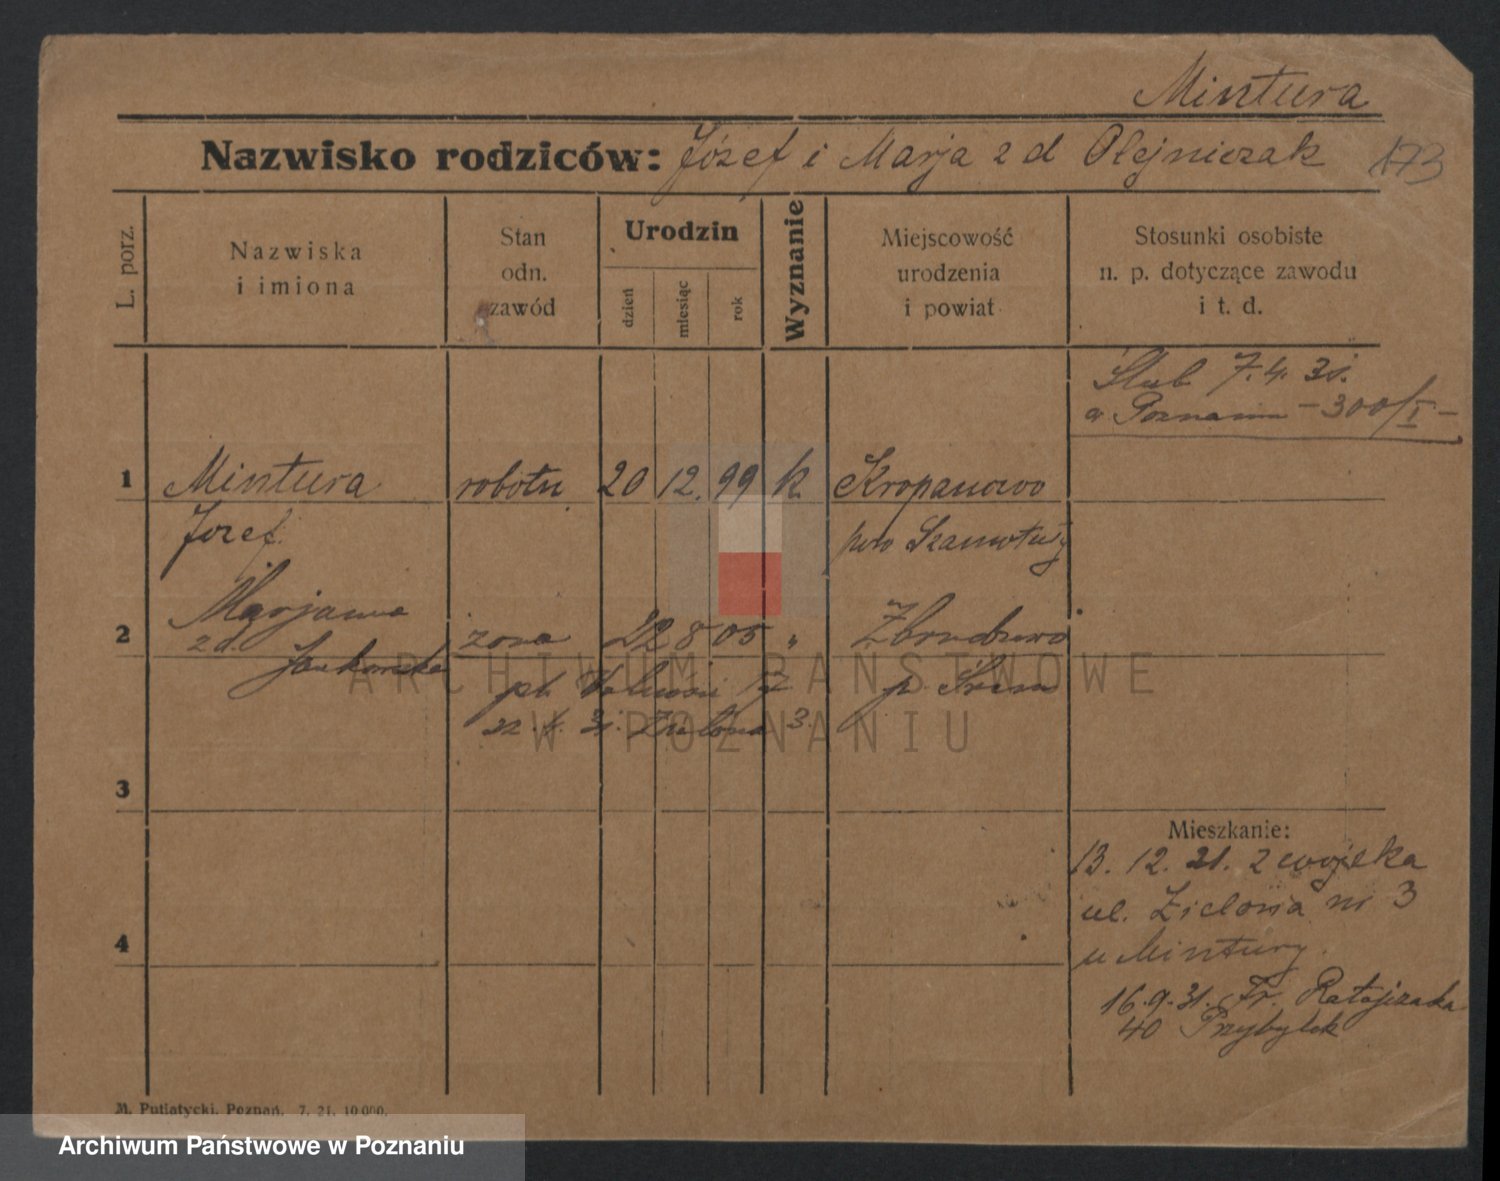 Mintura
Nazwisko rodziców: Józef i Marja z d Olejniczak 173
L. porz.
Nazwiska
i imiona
Stan
odn.
zawód
Urodzin
dzień
miesiąc
rok
Wyznanie
Miejscowość
urodzenia
i powiat
Stosunki osobiste
n. p. dotyczące zawodu
i t. d.
Ślub 7.4.31.
w Poznaniu - 300/I -
1 Mintura robotn 20 12. 99 k Kropanowo
Józef pow Szamotuły
2 Marjanna
zd. żona 22 8 05 " Zbrudzewo
Jankowska
pl. 17 p. Śrem
31. Zielona 3.
3
4
Mieszkanie:
13. 12. 21. z wojska
ul. Zielona nr 3
u Mintury.
16.9.31. Fr. Ratajczaka
40 Przybylek
M. Putiatycki, Poznań, 7. 21. 10 000.
ARCHIWUM PAŃSTWOWE
W POZNANIU
Archiwum Państwowe w Poznaniu